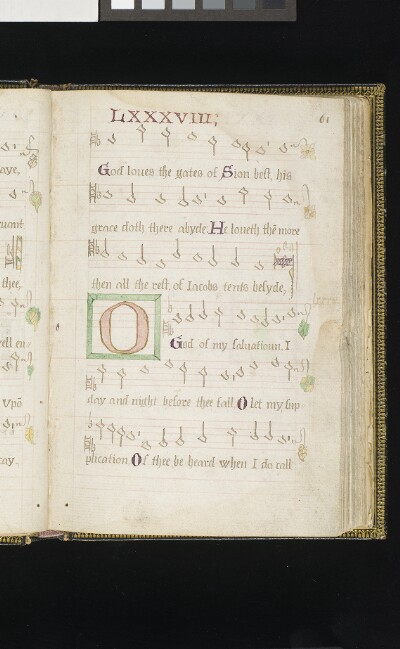 aye,
uant
thee,
Vpō
LXXXVIII;
61
God loues the gates of Sion best, his
grace doth there abyde. He loueth thē more
then all the rest of Iacobs tents besyde,
O
God of my saluatioun, I
day and night before thee call, O let my sup-
plication. Of thee be heard when I do call